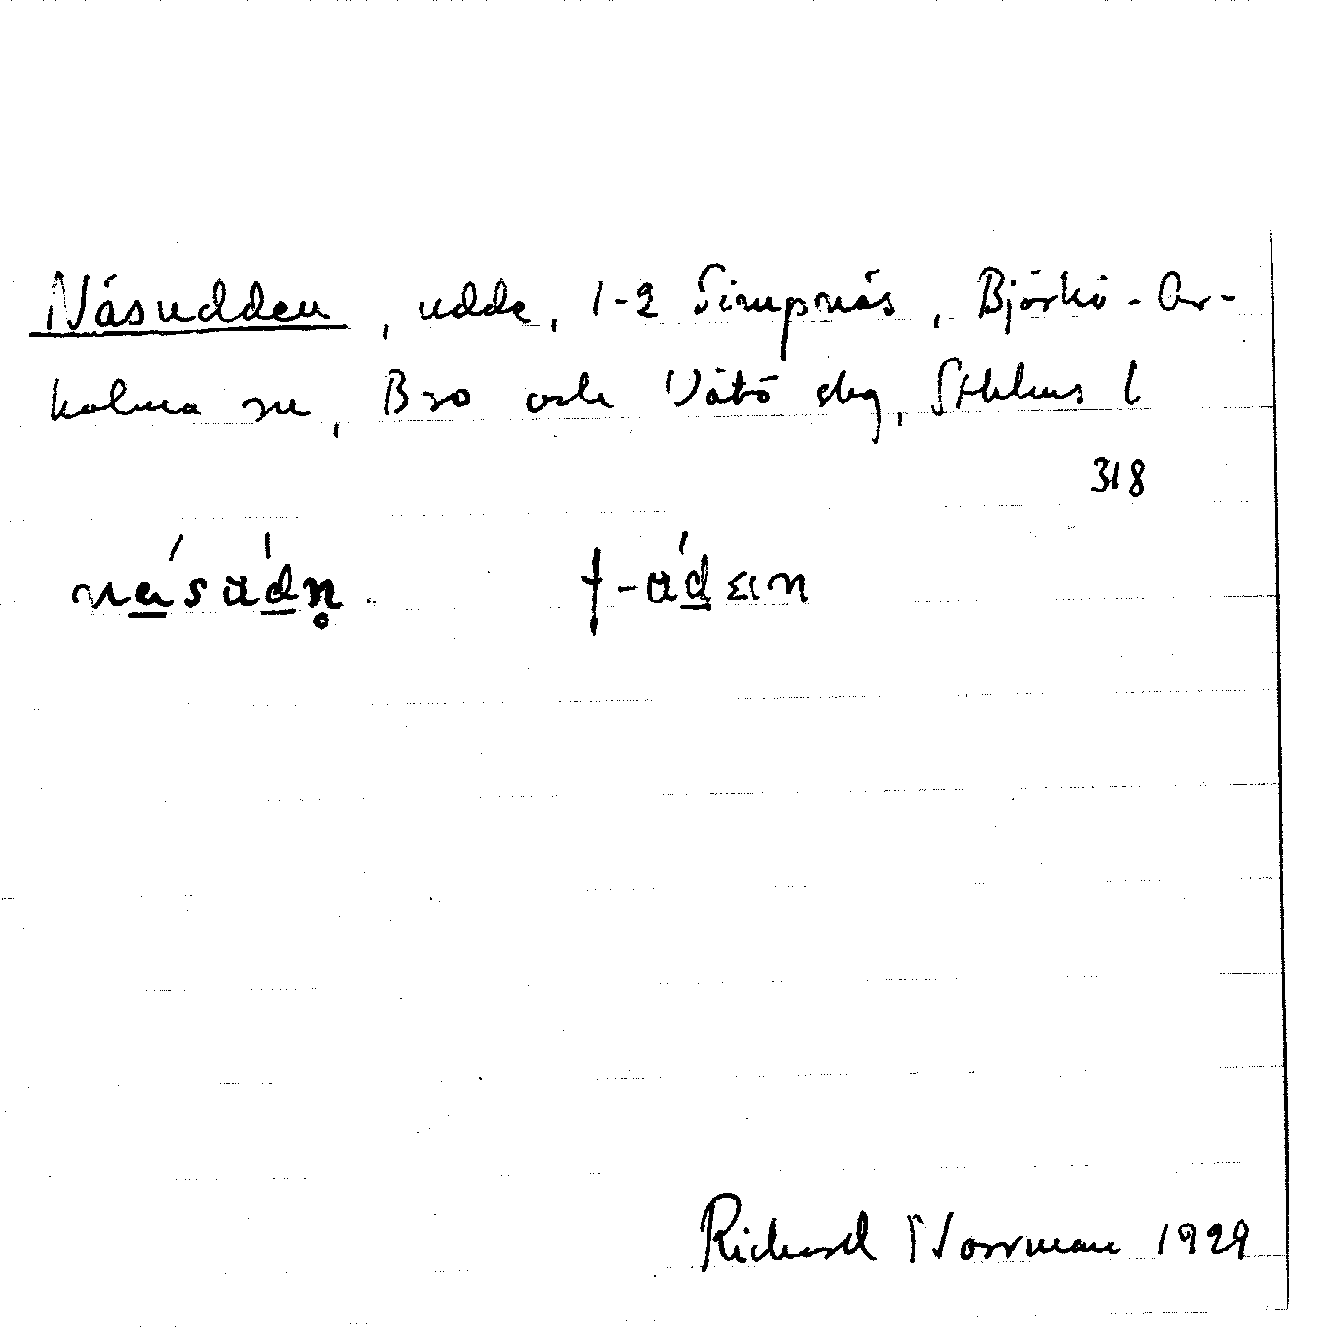 Näsudden, udde, 1-2 Simpnäs, Björkö-Ar-
kolma sn, Bro och Vätö skg, Sthlms l
318
näsudn. †-uden
Richard Norrman 1929